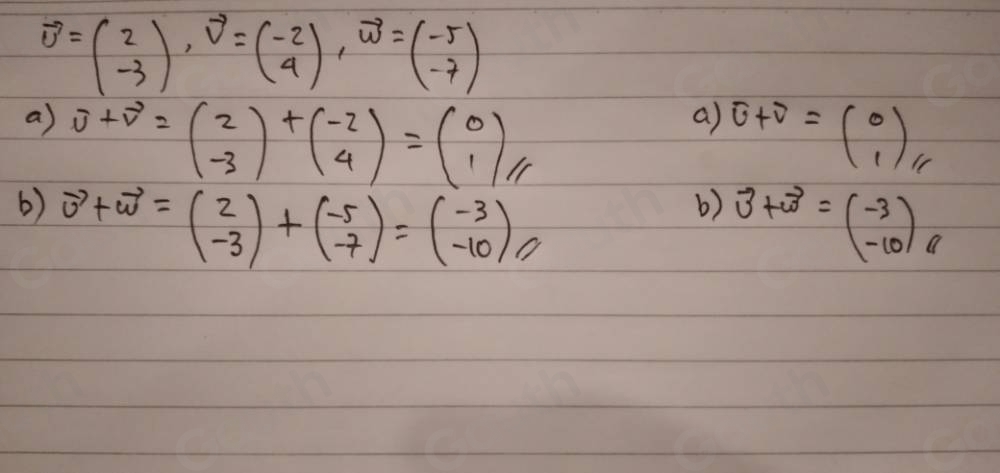 u⃗ = (2 -3), v⃗ = (-2 4), w⃗ = (-5 -7)
a) u⃗ + v⃗ = (2 -3) + (-2 4) = (0 1)//
b) u⃗ + w⃗ = (2 -3) + (-5 -7) = (-3 -10)//
a) u⃗ + v⃗ = (0 1)//
b) u⃗ + w⃗ = (-3 -10)//